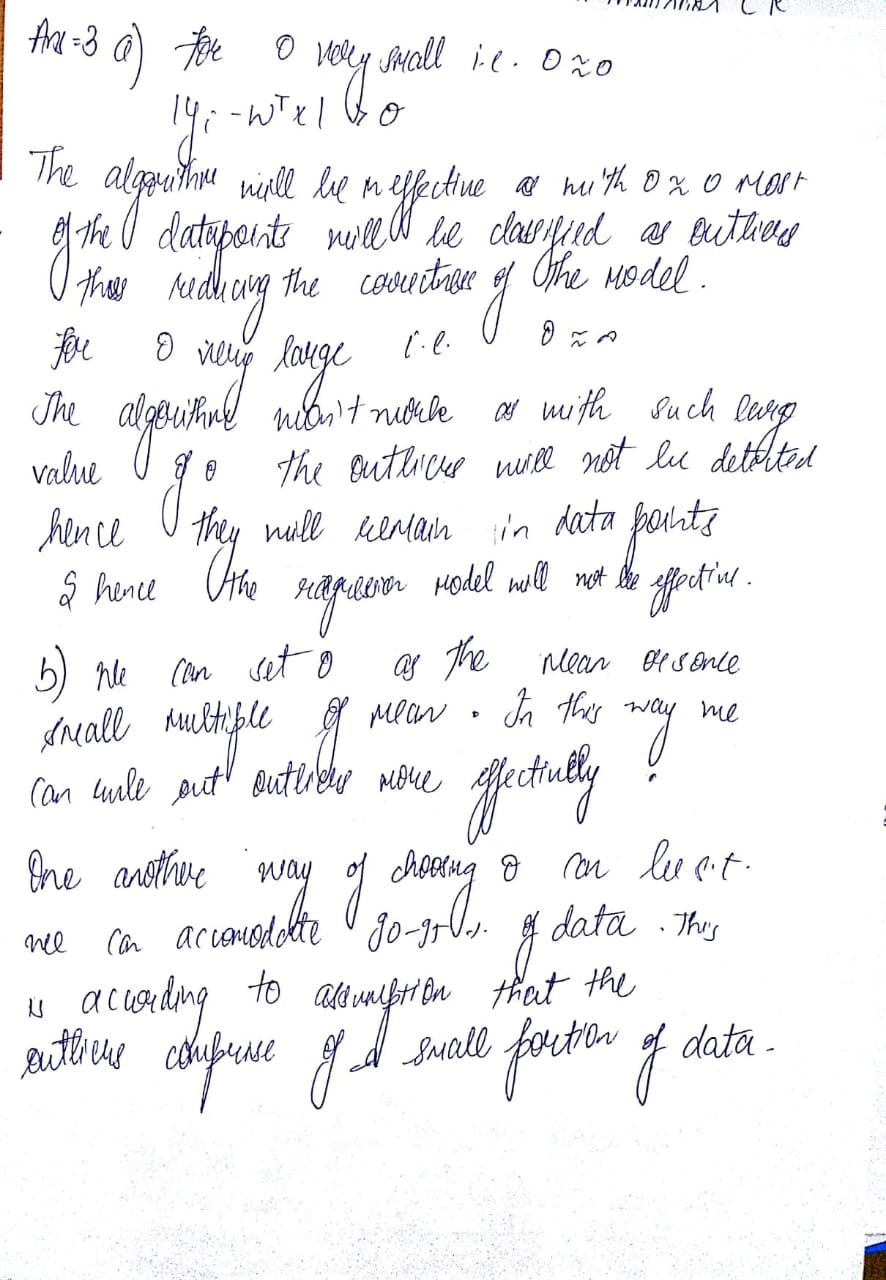 Ans=3 a) For θ very small i.e. θ≈0
|yi - wᵀx| > θ
The algorithm will be ineffective as with θ≈0 most
of the datapoints will be classified as outliers
thus reducing the correctness of the model.
For θ very large i.e. θ≈∞
The algorithm won't work as with such large
value of θ the outliers will not be detected
hence they will remain in data points
& hence the regression model will not be effective.
b) We can set θ as the mean or some
small multiple of mean. In this way we
can rule out outliers more effectively.
One another way of choosing θ can be s.t.
we can accomodate 90-95%. of data. This
is according to assumption that the
outliers comprise of a small portion of data.